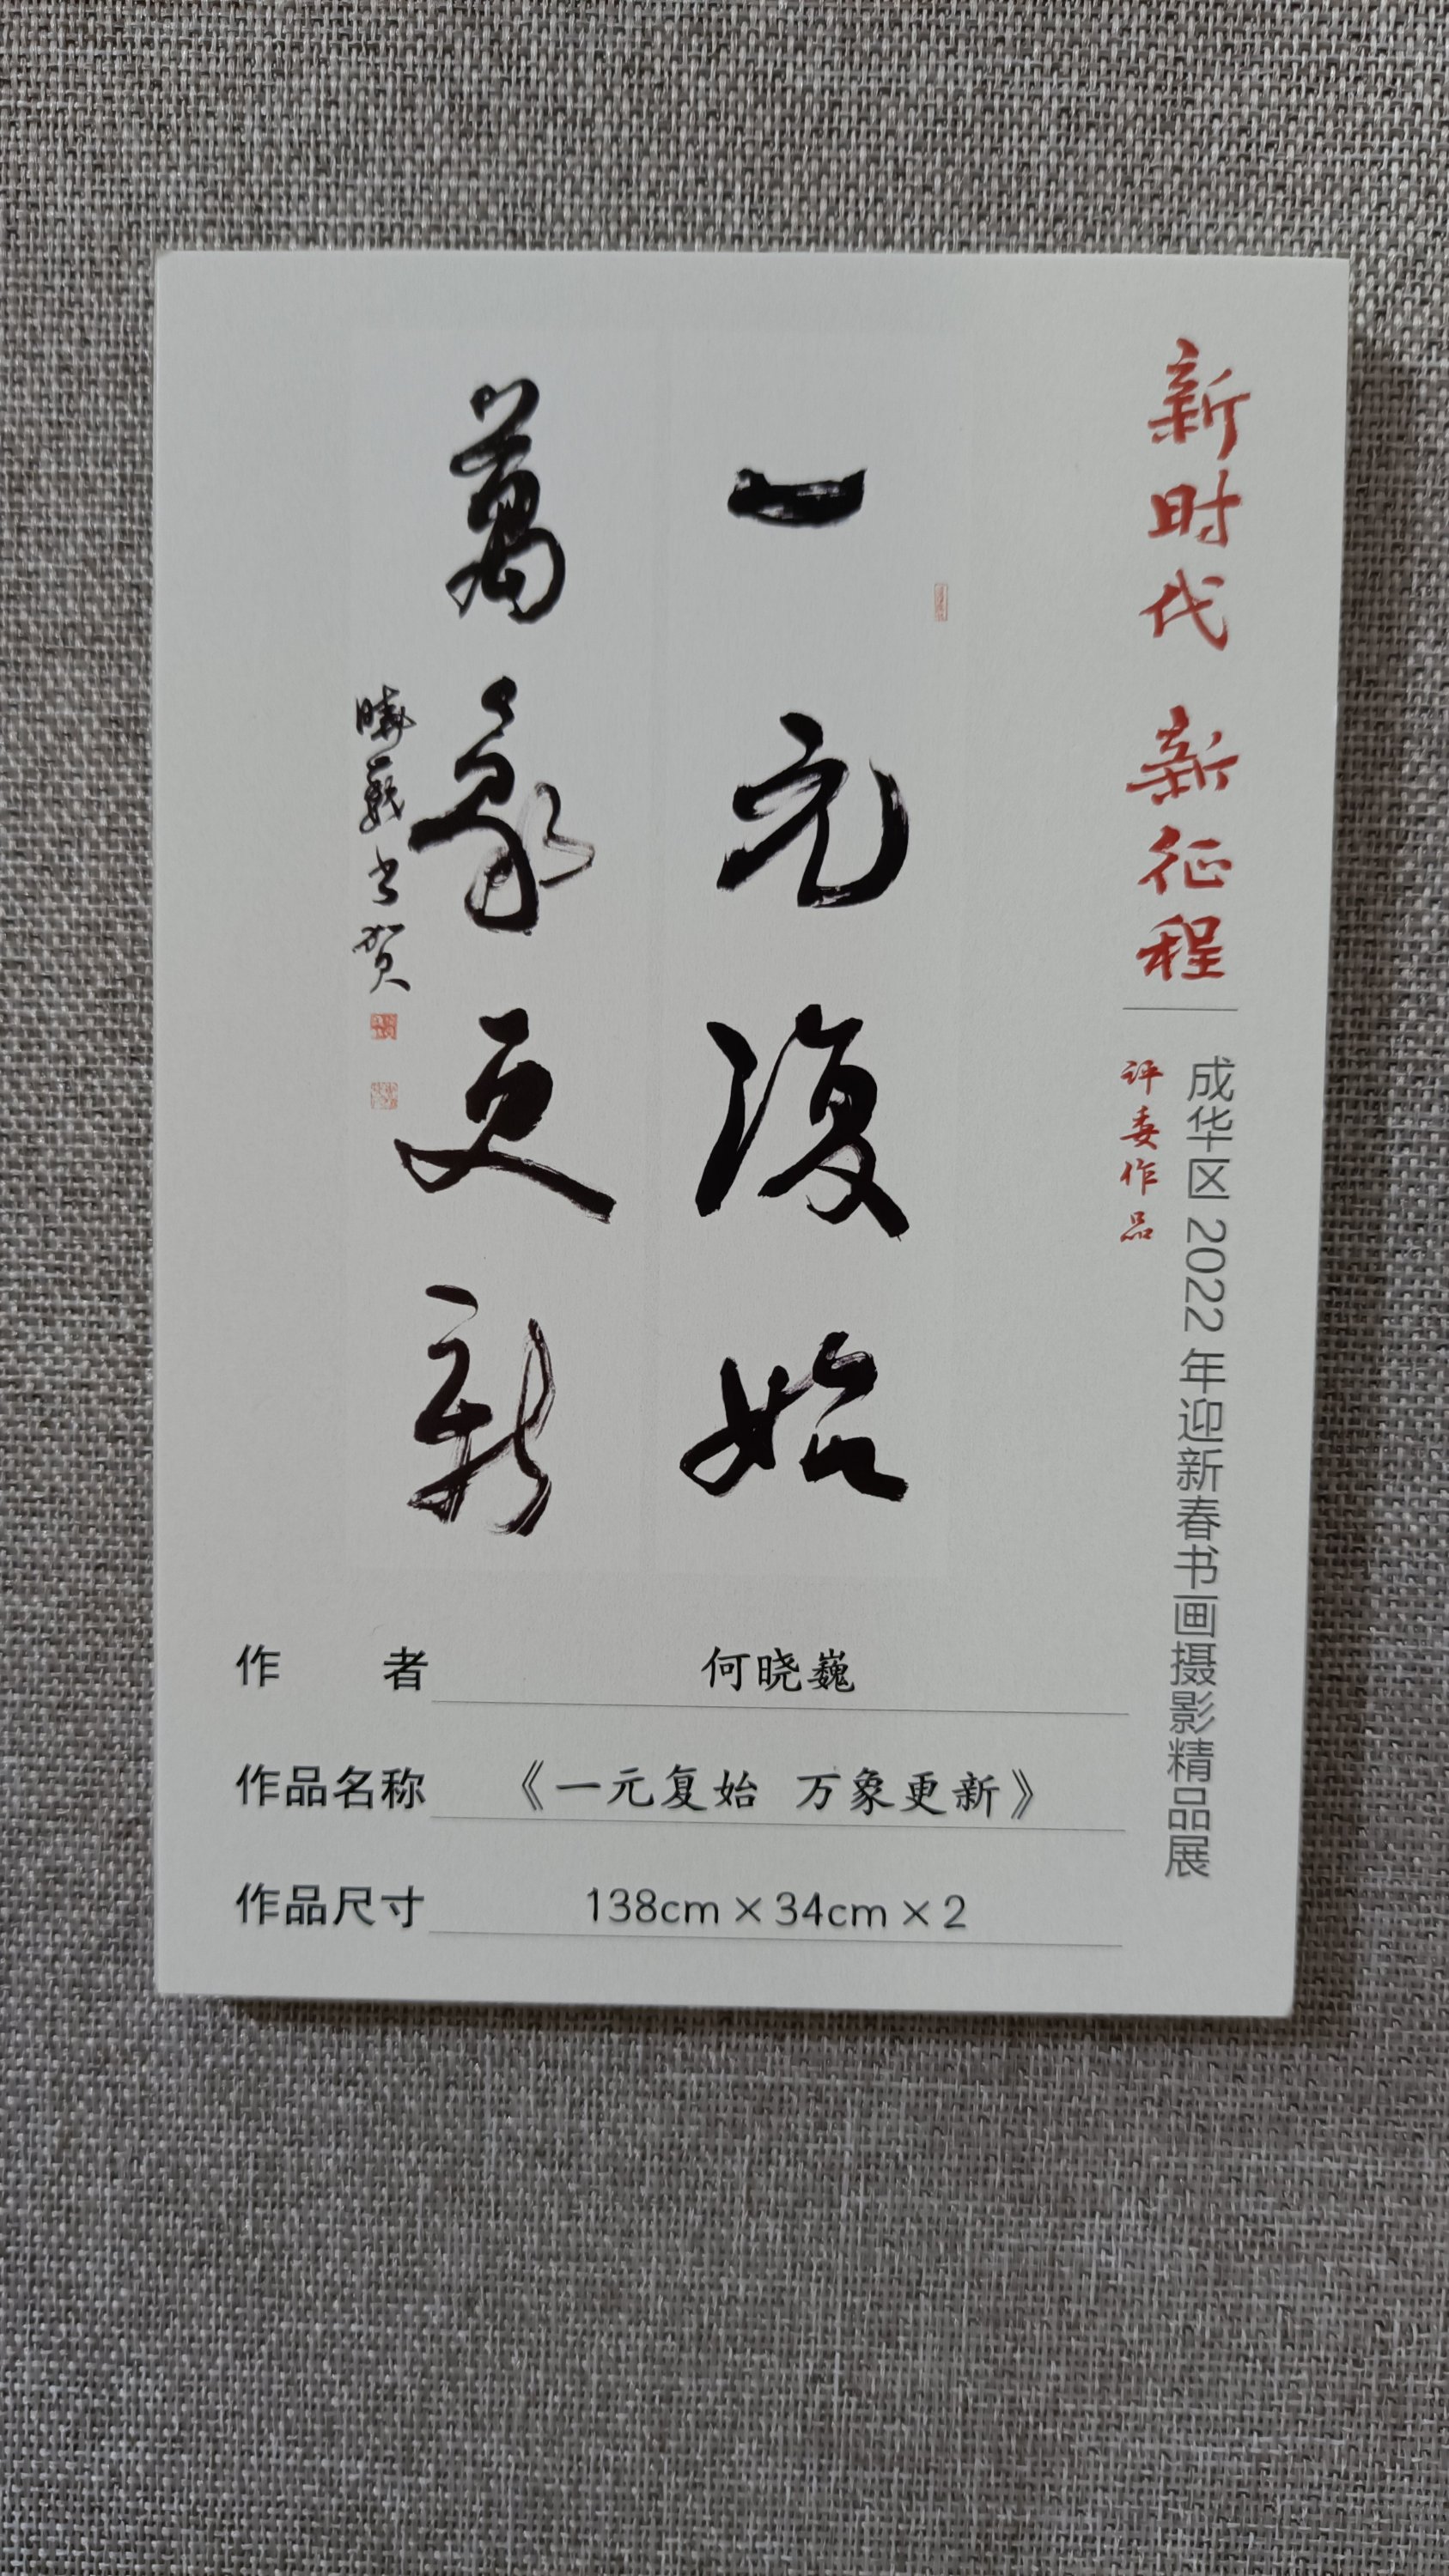 新时代 新征程
成华区 2022 年迎新春书画摄影精品展
评委作品
一元復始
萬象更新
曉巍书贺
作者 何晓巍
作品名称 《一元复始 万象更新》
作品尺寸 138cm×34cm×2